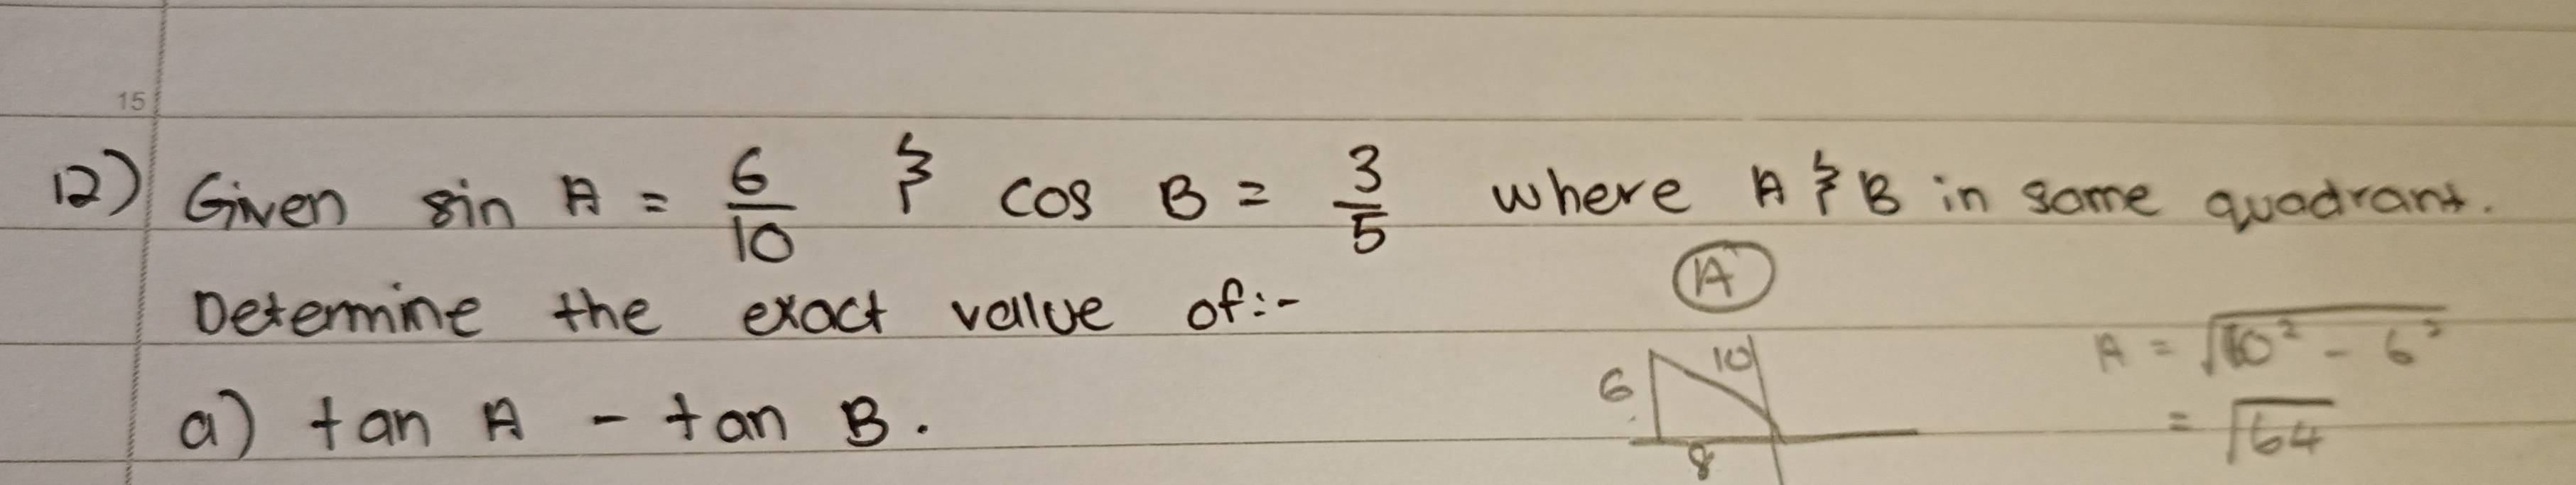 15
12) Given sin A = 6/10 & cos B = 3/5 where A & B in same quadrant.
Determine the exact value of:-
A
a) tan A - tan B.
6
10
8
A = √10² - 6²
= √64